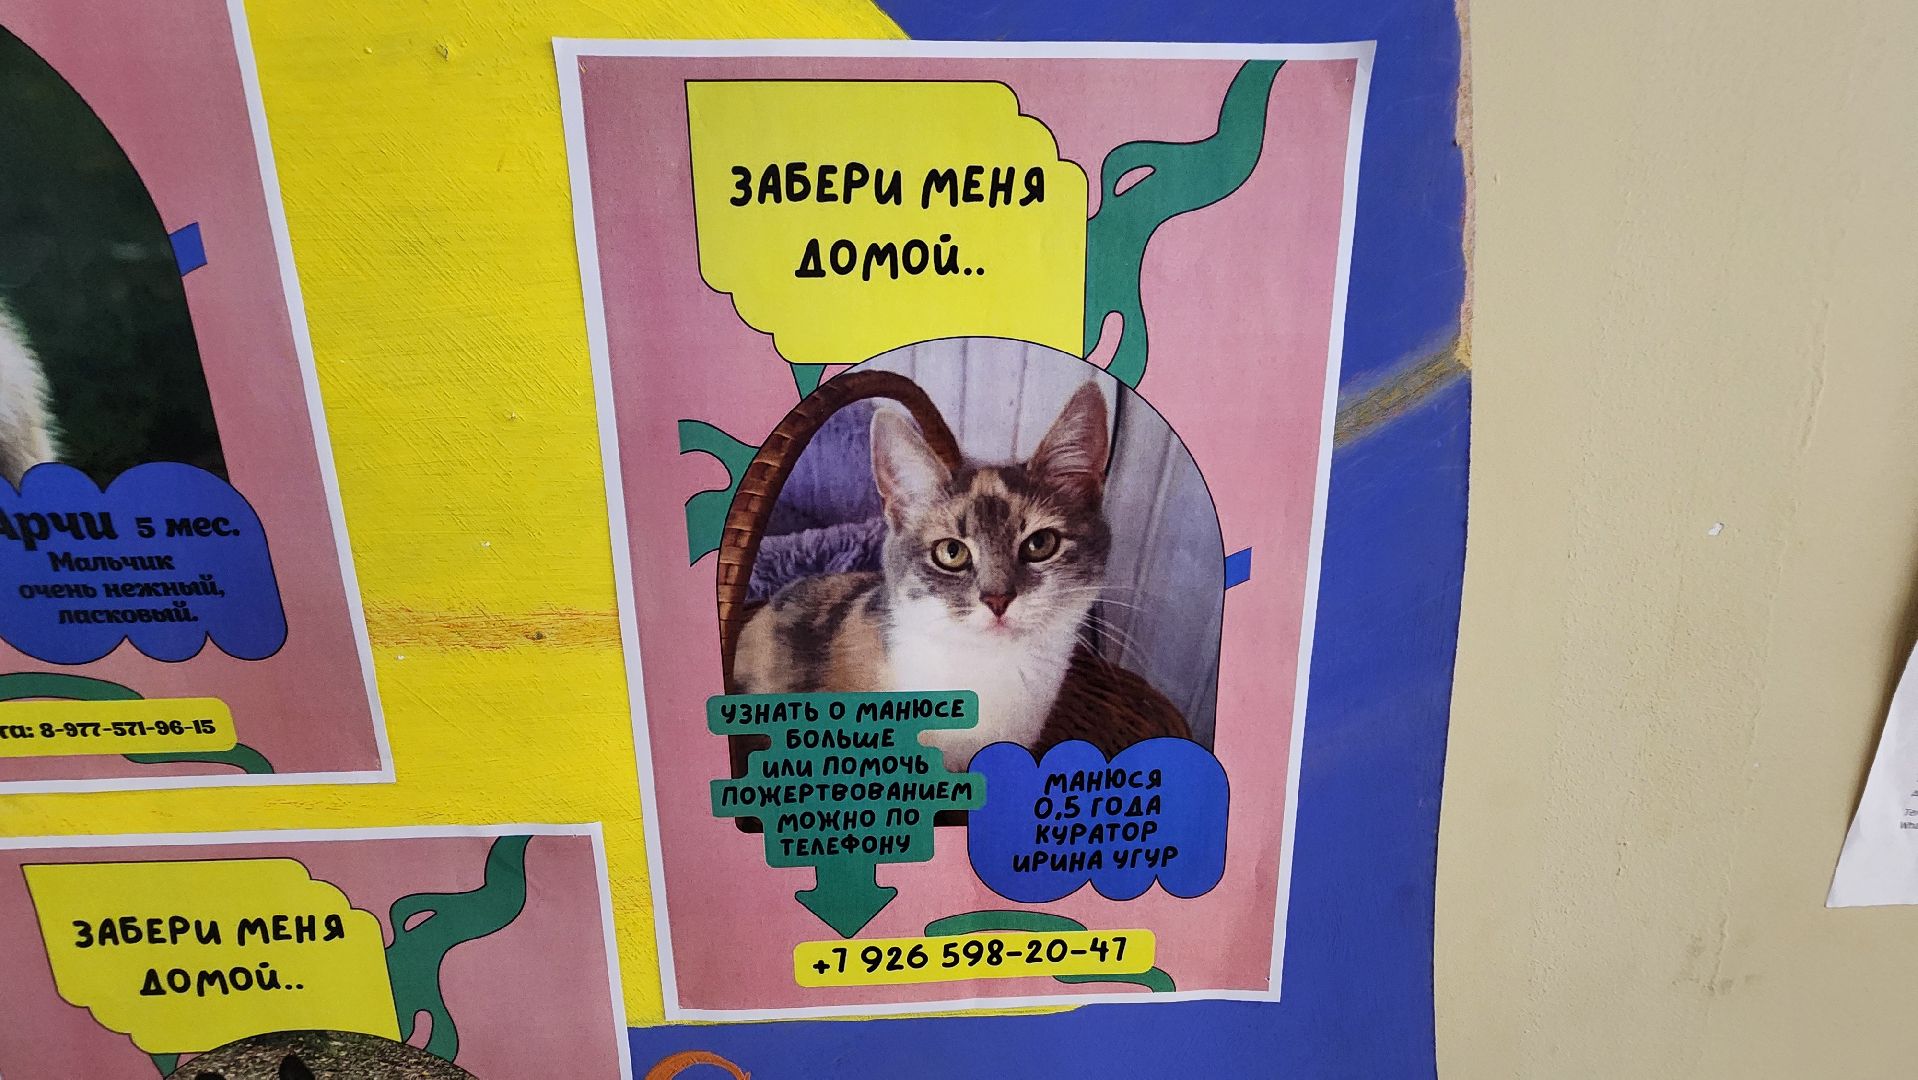 ЗАБЕРИ МЕНЯ
ДОМОЙ..
УЗНАТЬ О МАНЮСЕ
БОЛЬШЕ
ИЛИ ПОМОЧЬ
ПОЖЕРТВОВАНИЕМ
МОЖНО ПО
ТЕЛЕФОНУ
МАНЮСЯ
0,5 ГОДА
КУРАТОР
ИРИНА УГУР
+7 926 598-20-47
Арчи 5 мес.
Мальчик
очень нежный,
ласковый.
8-977-571-96-15
ЗАБЕРИ МЕНЯ
ДОМОЙ..